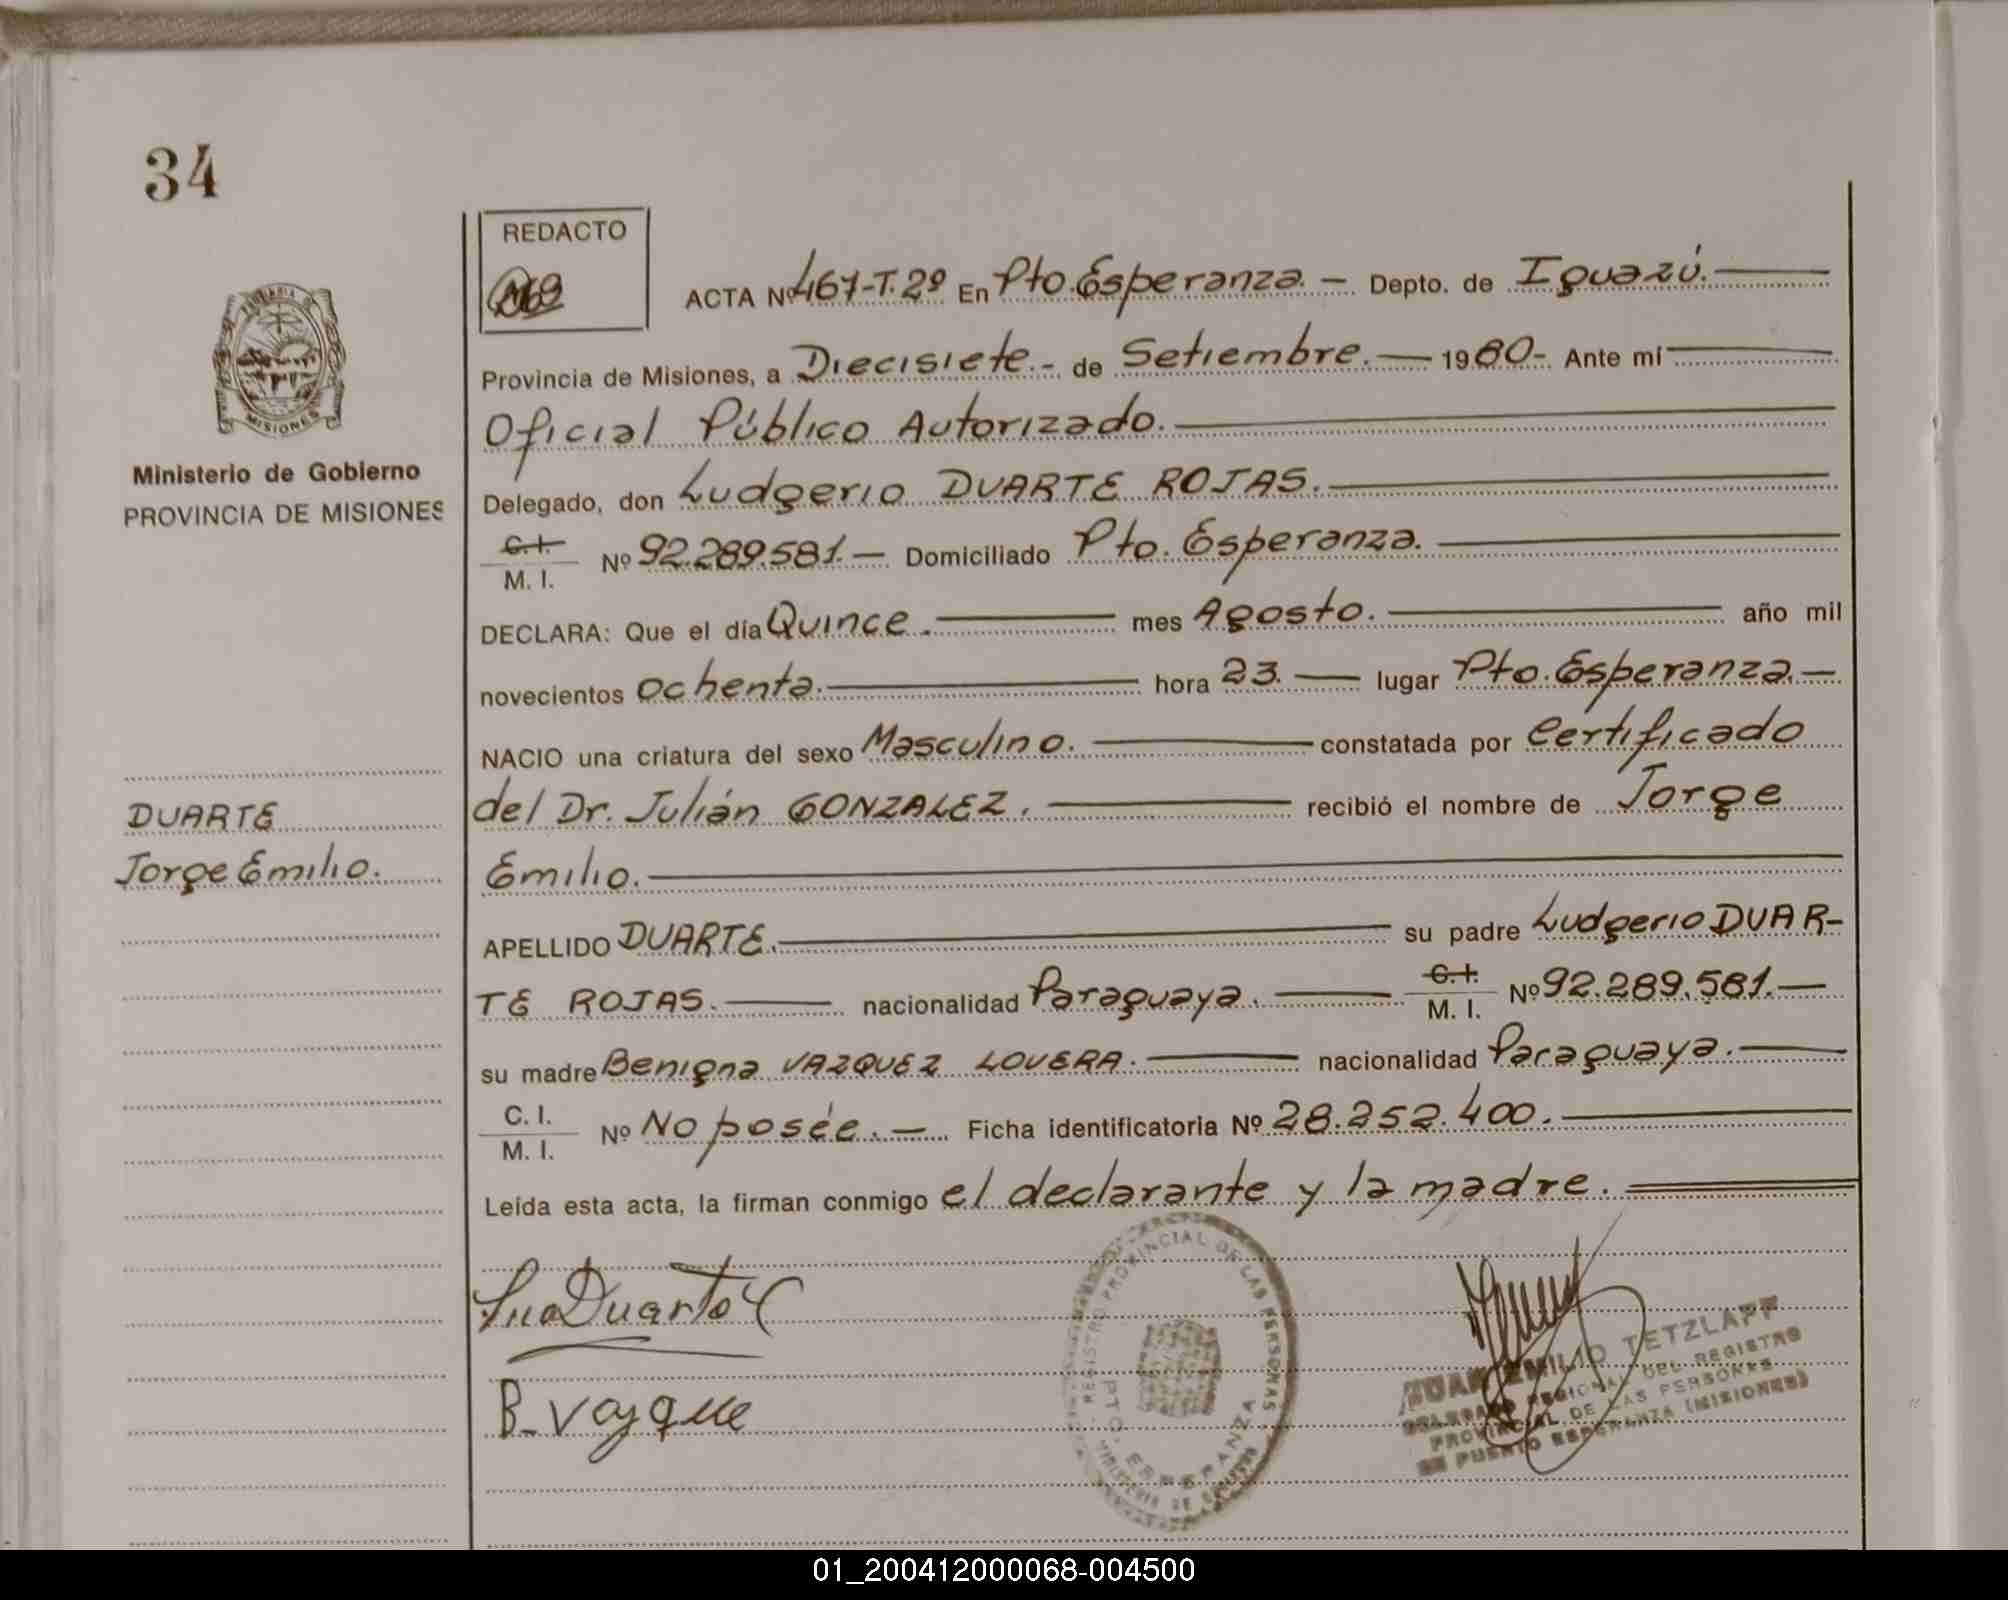 34
REDACTO
ACTA Nº 467-T.2º En Pto. Esperanza. - Depto. de Iguazú.
Provincia de Misiones, a Diecisiete.- de Setiembre. 1980-. Ante mí
Oficial Público Autorizado.
Delegado, don Ludgerio DUARTE ROJAS.
C.I.
M. I. Nº 92.289.581.- Domiciliado Pto. Esperanza.
DECLARA: Que el día Quince. mes Agosto. año mil
novecientos ochenta. hora 23. lugar Pto. Esperanza.-
NACIO una criatura del sexo Masculino. constatada por Certificado
del Dr. Julián GONZALEZ. recibió el nombre de Jorge
Emilio.
APELLIDO DUARTE. su padre Ludgerio DUAR-
TE ROJAS. nacionalidad Paraguaya. C.I. M. I. Nº 92.289.581.-
su madre Benigna VAZQUEZ LOVERA. nacionalidad Paraguaya.
C. I.
M. I. Nº No posée.- Ficha identificatoria Nº 28.252.400.
Leída esta acta, la firman conmigo el declarante y la madre.
PROVINCIA DE
MISIONES
Ministerio de Gobierno
PROVINCIA DE MISIONES
DUARTE
Jorge Emilio.
Duarte
B. Vazque
REGISTRO PROVINCIAL DE LAS PERSONAS
PTO. ESPERANZA
MINISTERIO DE GOBIERNO
JUAN EMILIO TETZLAFF
DELEGADO REGIONAL DEL REGISTRO
PROVINCIAL DE LAS PERSONAS
DE PUERTO ESPERANZA (MISIONES)
01_200412000068-004500